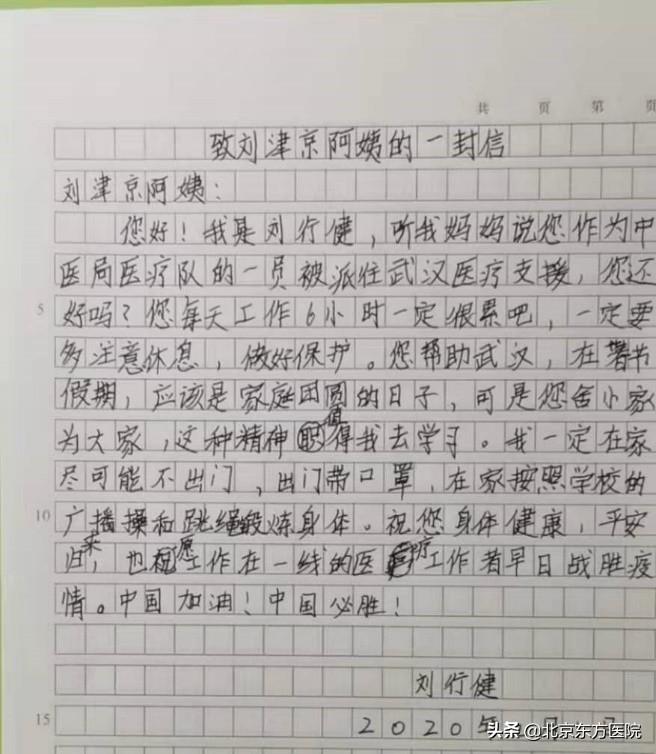 共 页 第 页
致刘津京阿姨的一封信
刘津京阿姨：
您好！我是刘行健，听我妈妈说您作为中
医局医疗队的一员被派往武汉医疗支援，您还
5
好吗？您每天工作6小时一定很累吧，一定要
多注意休息，做好保护。您帮助武汉，在春节
假期，应该是家庭团圆的日子，可是您舍小家
为大家，这种精神值得我去学习。我一定在家
尽可能不出门，出门带口罩，在家按照学校的
10
广播操和跳绳锻炼身体。祝您身体健康，平安
归来，也祝愿工作在一线的医疗工作者早日战胜疫
情。中国加油！中国必胜！
刘行健
15
2020年
头条@北京东方医院